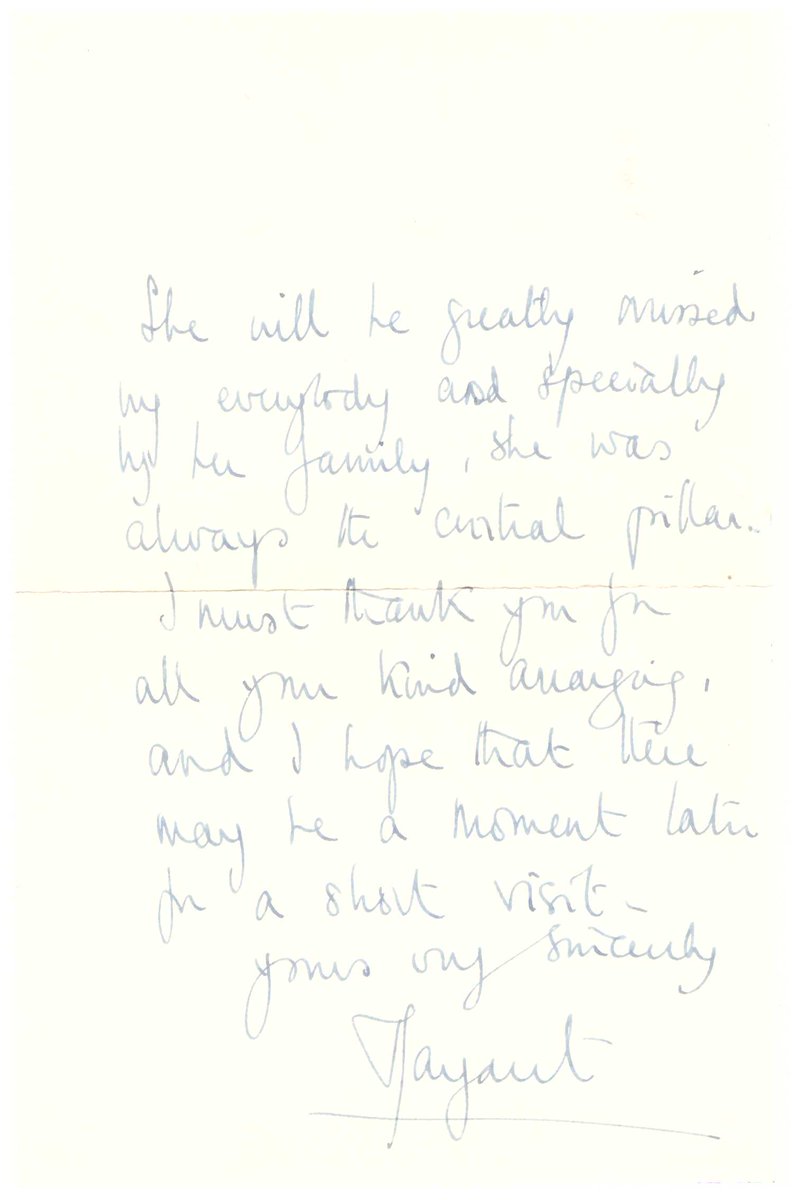 She will be greatly missed
by everybody and specially
by her family, she was
always the central pillar.
I must thank you for
all your kind arranging,
and I hope that there
may be a moment later
for a short visit -
yours very sincerely